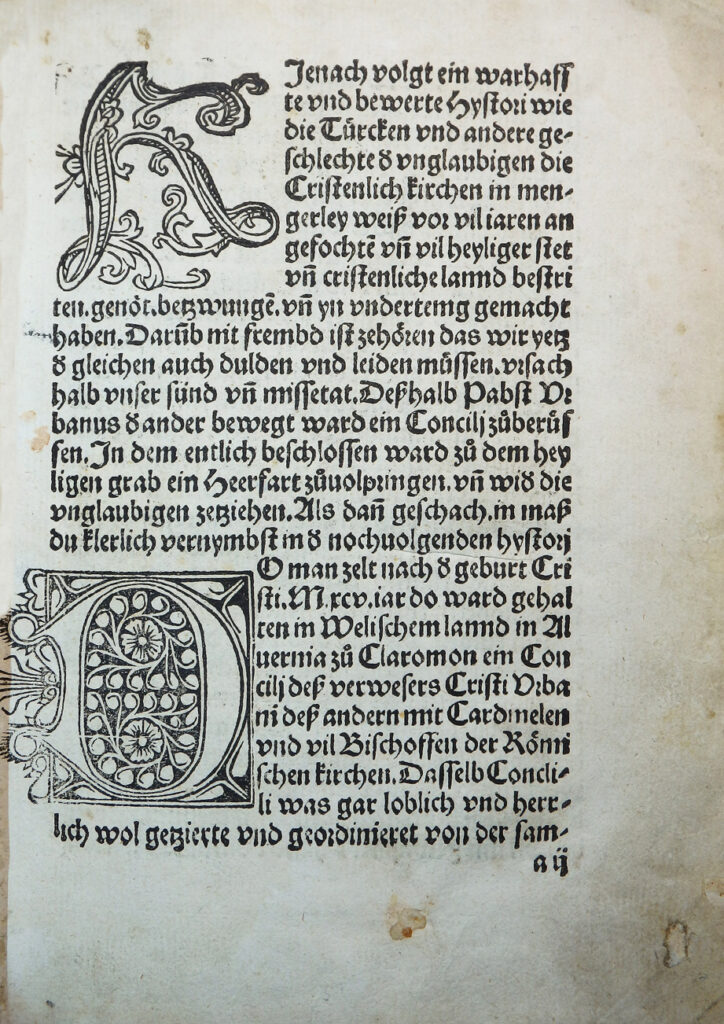 HJenach volgt ein warhafſ
te vnd bewerte Hyſtori wie
die Türcken vnd andere ge-
ſchlechte d̕ vnglaubigen die
Criſtenlich kirchen in men-
gerley weiß vor vil iaren an
gefochtē vn̄ vil heyliger ſtet
vn̄ criſtenliche lannd beſtri
ten. genöt. betzwungē. vn̄ yn vndertenig gemacht
haben. Darūb nit frembd iſt zehören das wir yetz
d̕ gleichen auch dulden vnd leiden müſſen. vrſach
halb vnſer ſünd vn̄ miſſetat. Deßhalb Pabſt Vr
banus d̕ ander bewegt ward ein Concilj zůberüf
fen. In dem entlich beſchloſſen ward zů dem hey
ligen grab ein Heerfart zůuolpringen. vn̄ wid̕ die
vnglaubigen zetziehen. Als dan̄ geſchach. in maß
du klerlich vernymbſt in d̕ nochuolgenden hyſtorj
DO man zelt nach d̕ geburt Cri
ſti. M. xcv. iar do ward gehal
ten in Welſchem lannd in Al
uernia zů Claromon ein Con
cilj deß verweſers Criſti Vrba
ni deß andern mit Cardinelen
vnd vil Biſchoffen der Römi
ſchen kirchen. Daſſelb Concli-
li was gar loblich vnd herr-
lich wol getzierte vnd geordinieret von der ſam-
a ij